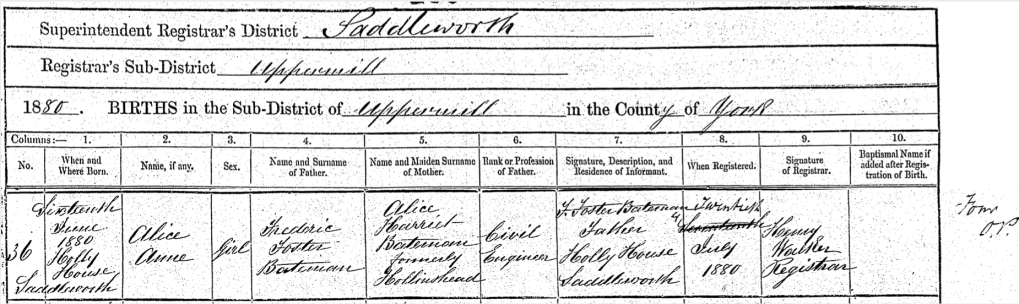 Superintendent Registrar's District Saddleworth
Registrar's Sub-District Uppermill
1880. BIRTHS in the Sub-District of Uppermill in the County of York
Columns:— 1. 2. 3. 4. 5. 6. 7. 8. 9. 10.
No. When and Where Born. Name, if any. Sex. Name and Surname of Father. Name and Maiden Surname of Mother. Rank or Profession of Father. Signature, Description, and Residence of Informant. When Registered. Signature of Registrar. Baptismal Name if added after Registration of Birth.
36
Sixteenth
June
1880
Holly
House
Saddleworth
Alice
Anne
Girl
Frederic
Foster
Bateman
Alice
Harriet
Bateman
formerly
Hollinshead
Civil
Engineer
F. Foster Bateman
Father
Holly House
Saddleworth
Twentieth
Seventeenth
July
1880
Henry
Walker
Registrar
Four